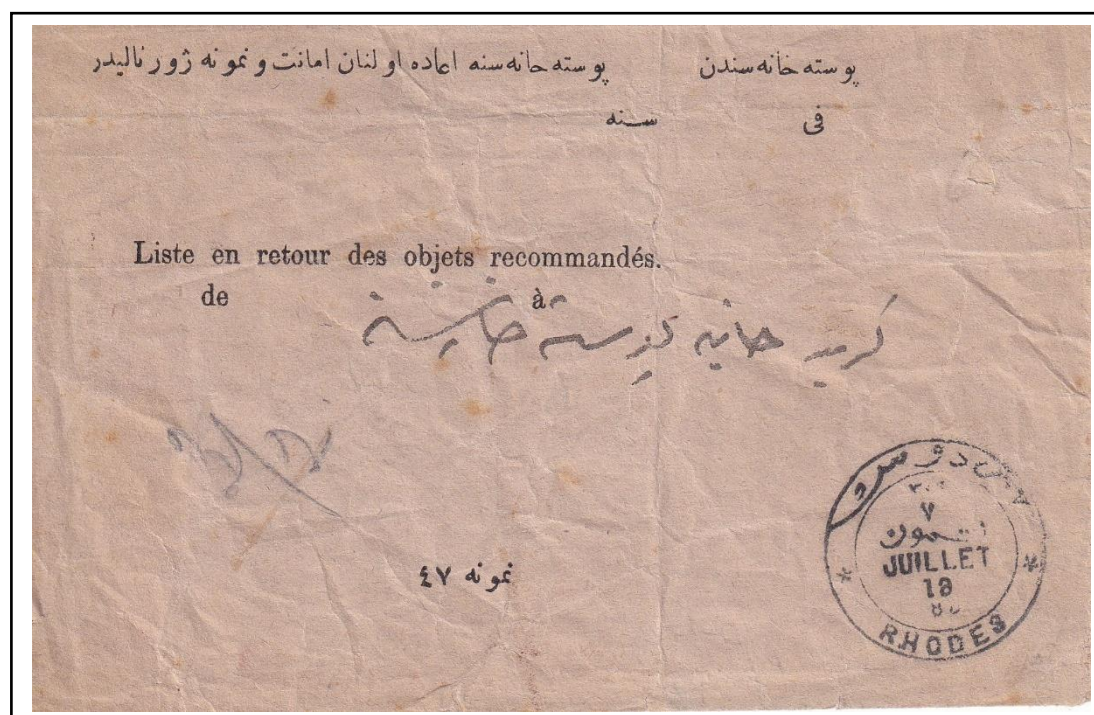 پوسته خانه سندن پوسته خانه سنه اعاده اولنان امانت و نمونه ژورنالیدر
فی سنه
Liste en retour des objets recommandés.
de à
کرید حانیه پوسته خانه سنه
نمونه ٤٧
ردوس
٧
تموز
JUILLET
19
RHODES